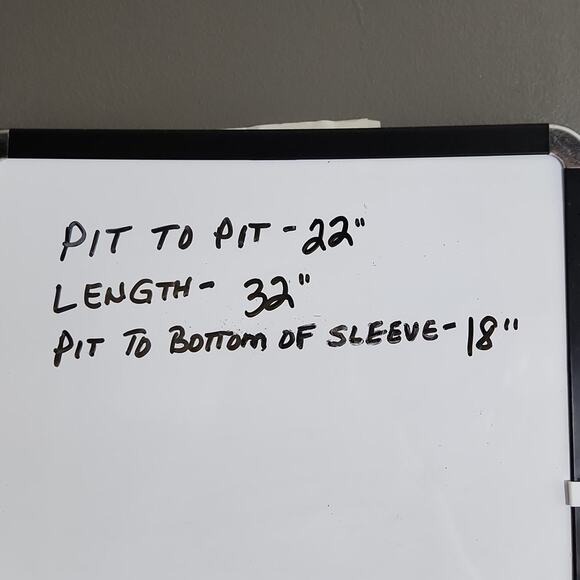 PIT TO PIT - 22"
LENGTH - 32"
PIT TO BOTTOM OF SLEEVE - 18"